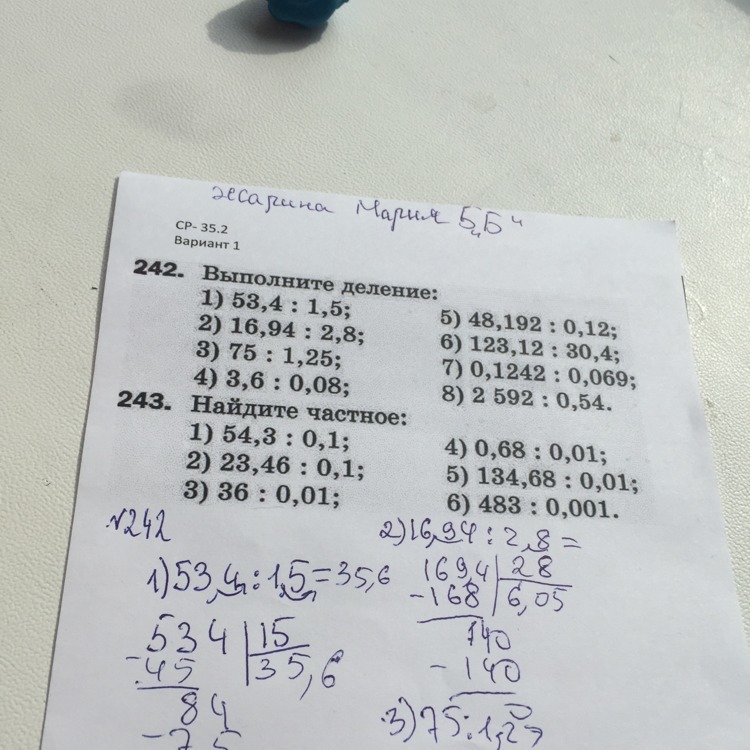 Жарина Мария 5„Б“
СР- 35.2
Вариант 1
242. Выполните деление:
1) 53,4 : 1,5;
2) 16,94 : 2,8;
3) 75 : 1,25;
4) 3,6 : 0,08;
5) 48,192 : 0,12;
6) 123,12 : 30,4;
7) 0,1242 : 0,069;
8) 2 592 : 0,54.
243. Найдите частное:
1) 54,3 : 0,1;
2) 23,46 : 0,1;
3) 36 : 0,01;
4) 0,68 : 0,01;
5) 134,68 : 0,01;
6) 483 : 0,001.
№242
1) 53,4 : 1,5 = 35,6
534 | 15
- 45 | 35,6
84
- 75
2) 16,94 : 2,8 =
169,4 | 28
- 168 | 6,05
140
- 140
0
3) 75 : 1,25